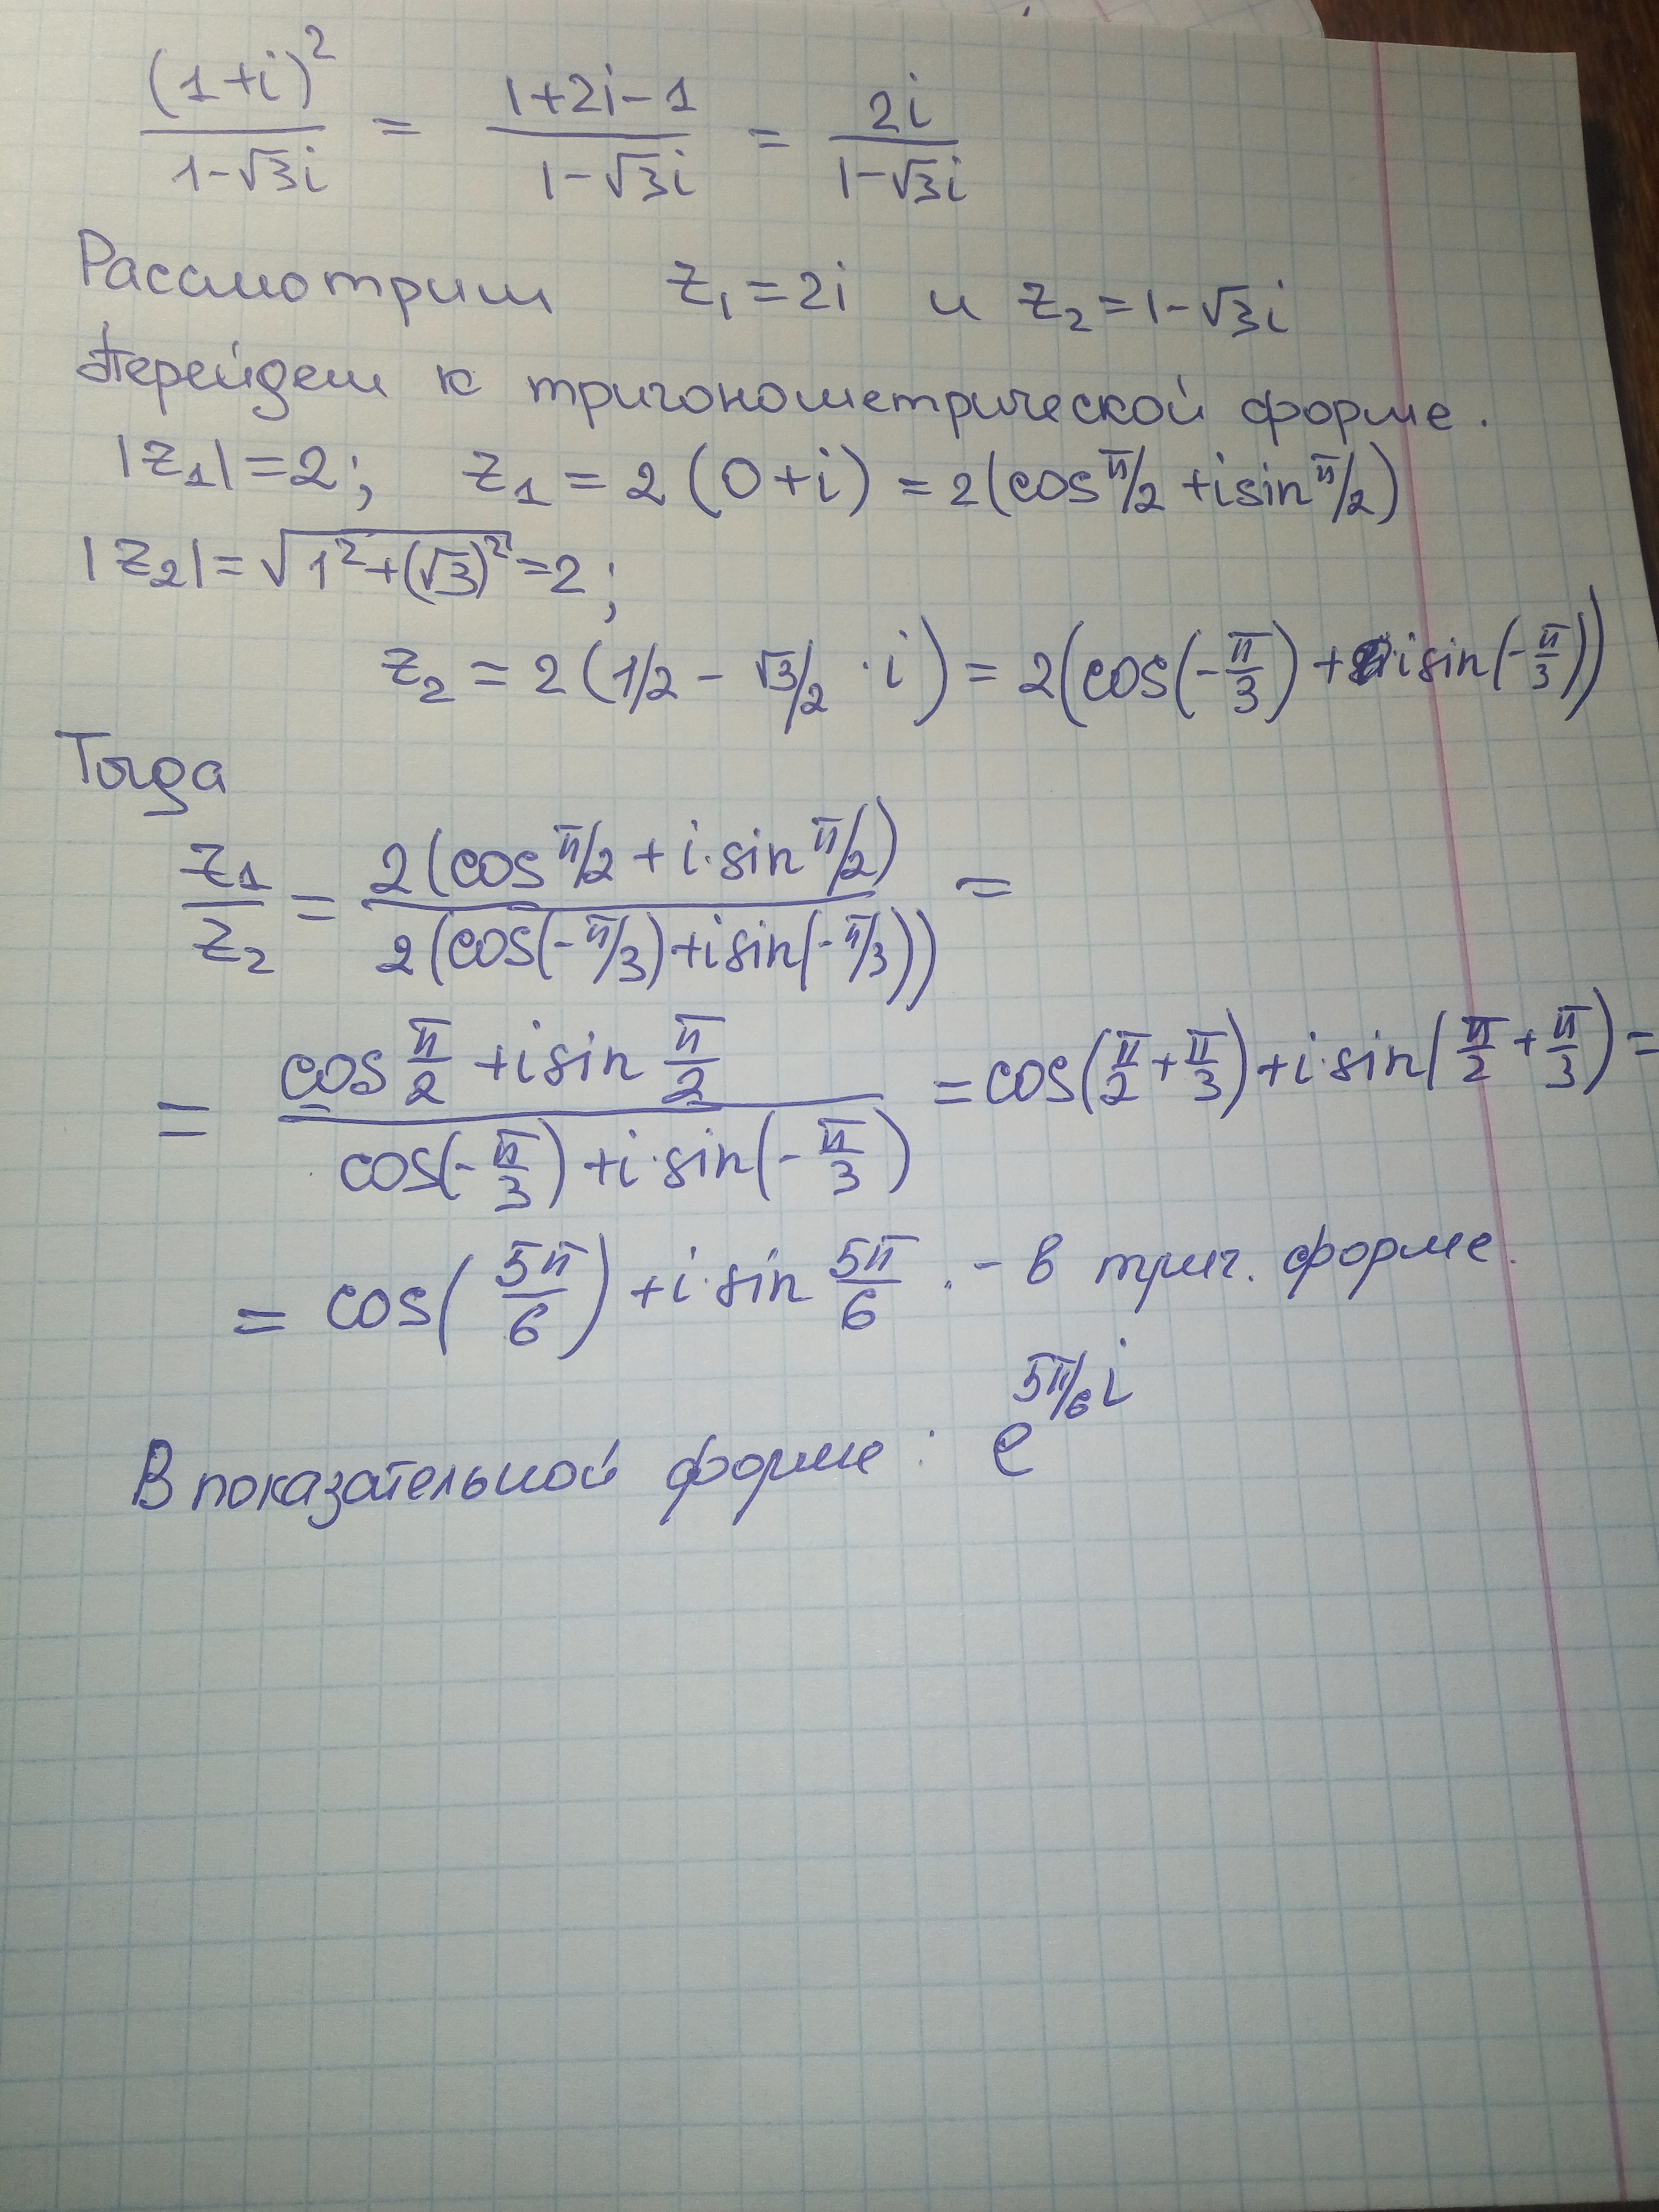 (1+i)² / (1-√3i) = (1+2i-1) / (1-√3i) = 2i / (1-√3i)
Рассмотрим z₁=2i и z₂=1-√3i
Перейдем к тригонометрической форме.
|z₁|=2; z₁ = 2(0+i) = 2(cos π/2 + i sin π/2)
|z₂|=√(1²+(√3)²)=2;
z₂ = 2(1/2 - √3/2 · i) = 2(cos(-π/3) + i sin(-π/3))
Тогда
z₁/z₂ = 2(cos π/2 + i·sin π/2) / 2(cos(-π/3)+i sin(-π/3)) =
= (cos π/2 + i sin π/2) / (cos(-π/3) + i·sin(-π/3)) = cos(π/2 + π/3) + i·sin(π/2 + π/3) =
= cos(5π/6) + i·sin 5π/6 . - в триг. форме.
В показательной форме: e^(5π/6 i)